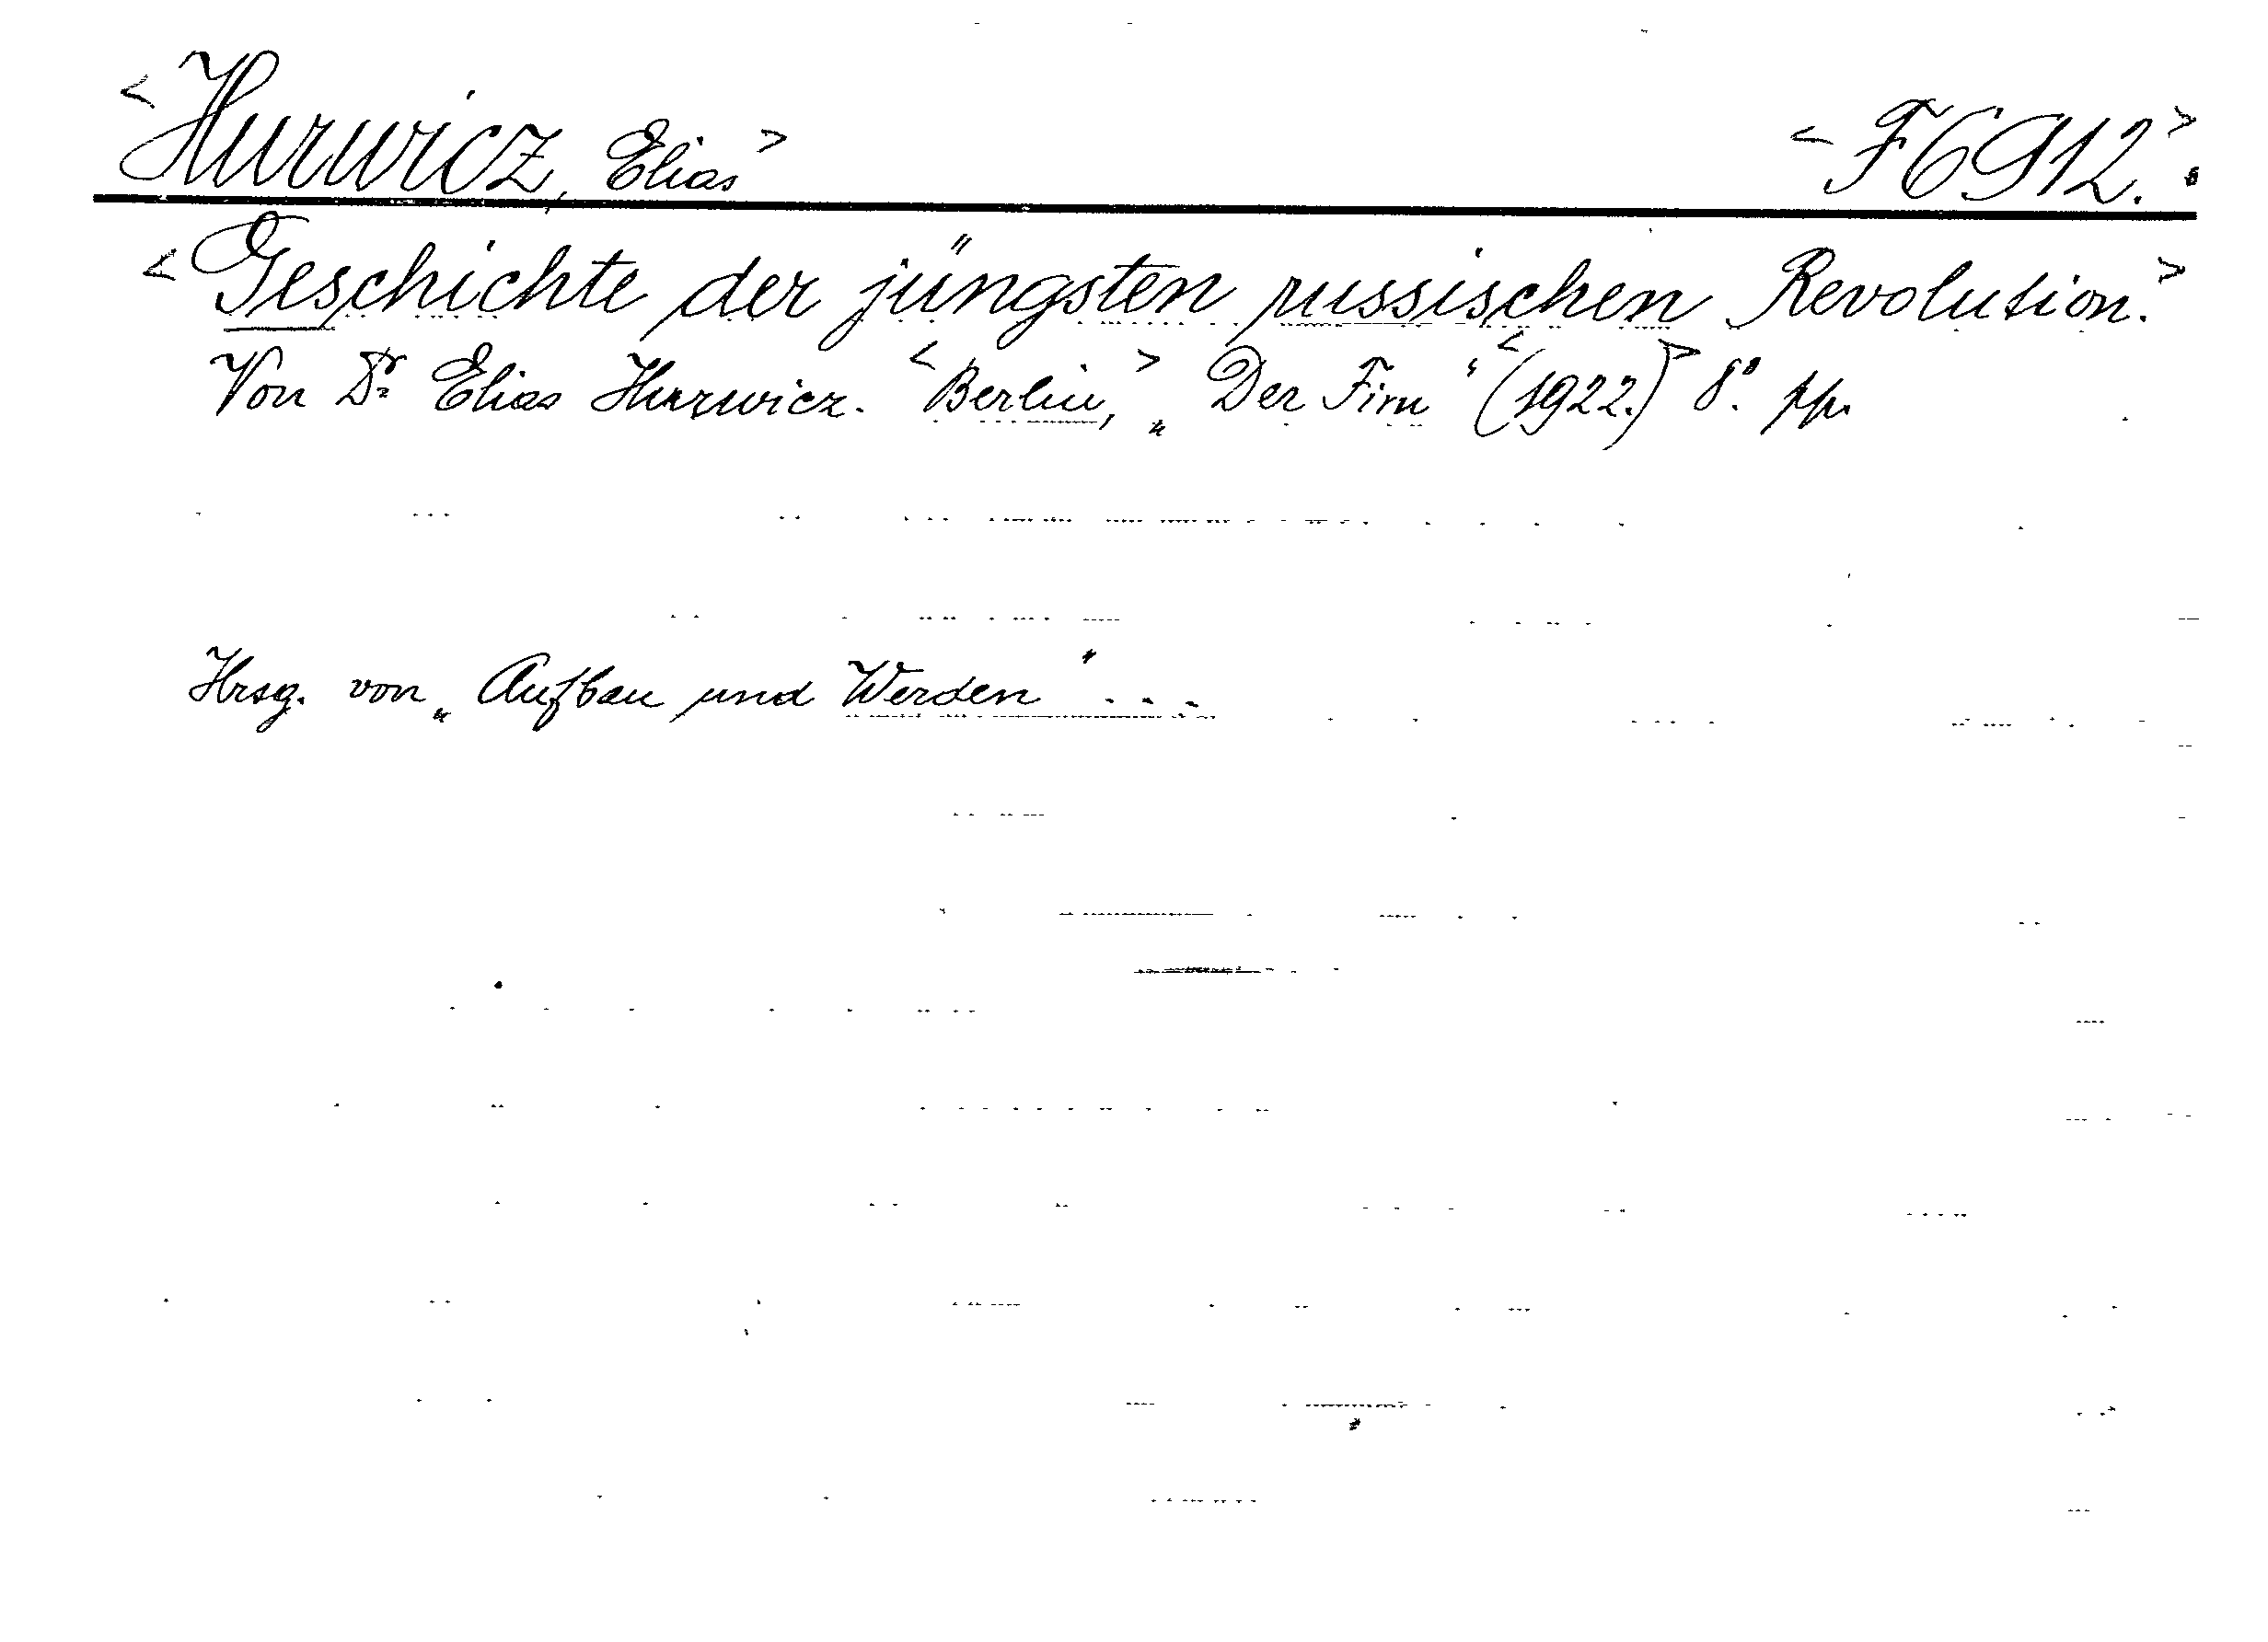 <Hurwicz, Elias> <F6912.>
<Geschichte der jüngsten russischen Revolution.>
Von Dr Elias Hurwicz. <Berlin,> „Der Firn“ <(1922.)> 8º. pp.
Hrsg. von „Aufbau und Werden“ ...